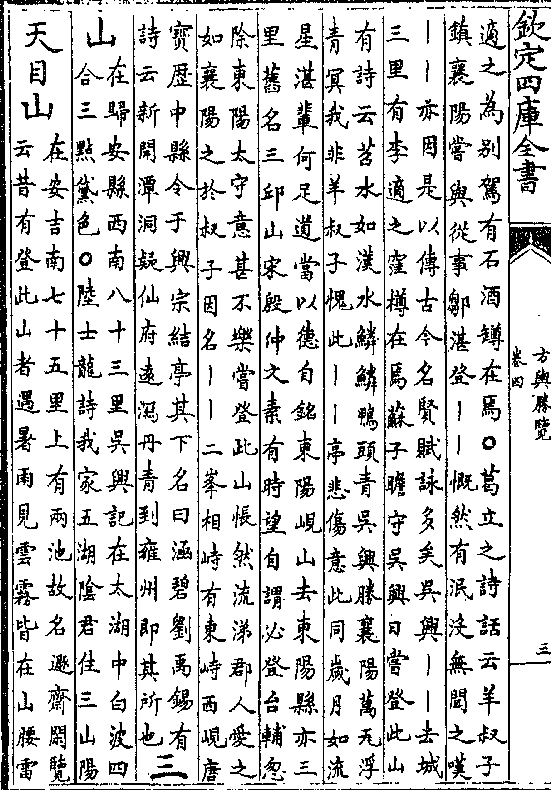 欽定四庫全書
方輿勝覽
卷四
三
適之為別駕有石酒罇在焉○葛立之詩話云羊叔子
鎮襄陽嘗與從事鄒湛登――慨然有泯没無聞之嘆
――亦因是以傳古今名賢賦詠多矣吳興――去城
三里有李適之窪樽在焉蘇子瞻守吳興日嘗登此山
有詩云苕水如漢水鱗鱗鴨頭青吳興勝襄陽萬瓦浮
青冥我非羊叔子愧此――亭悲傷意此同歲月如流
星湛輩何足道當以德自銘東陽峴山去東陽縣亦三
里舊名三邱山宋殷仲文素有時望自謂必登台輔忽
除東陽太守意甚不樂嘗登此山悵然流涕郡人愛之
如襄陽之於叔子因名――二峯相峙有東峙西峴唐
寳歴中縣令于興宗結亭其下名曰涵碧劉禹錫有
詩云新開潭洞疑仙府遠瀉丹青到雍州即其所也
三
山
在歸安縣西南八十三里吳興記在太湖中白波四
合三點黛色○陸士龍詩我家五湖陰君住三山陽
天目山
在安吉南七十五里上有兩池故名遯齋閑覽
云昔有登此山者遇暑雨見雲霧皆在山腰雷